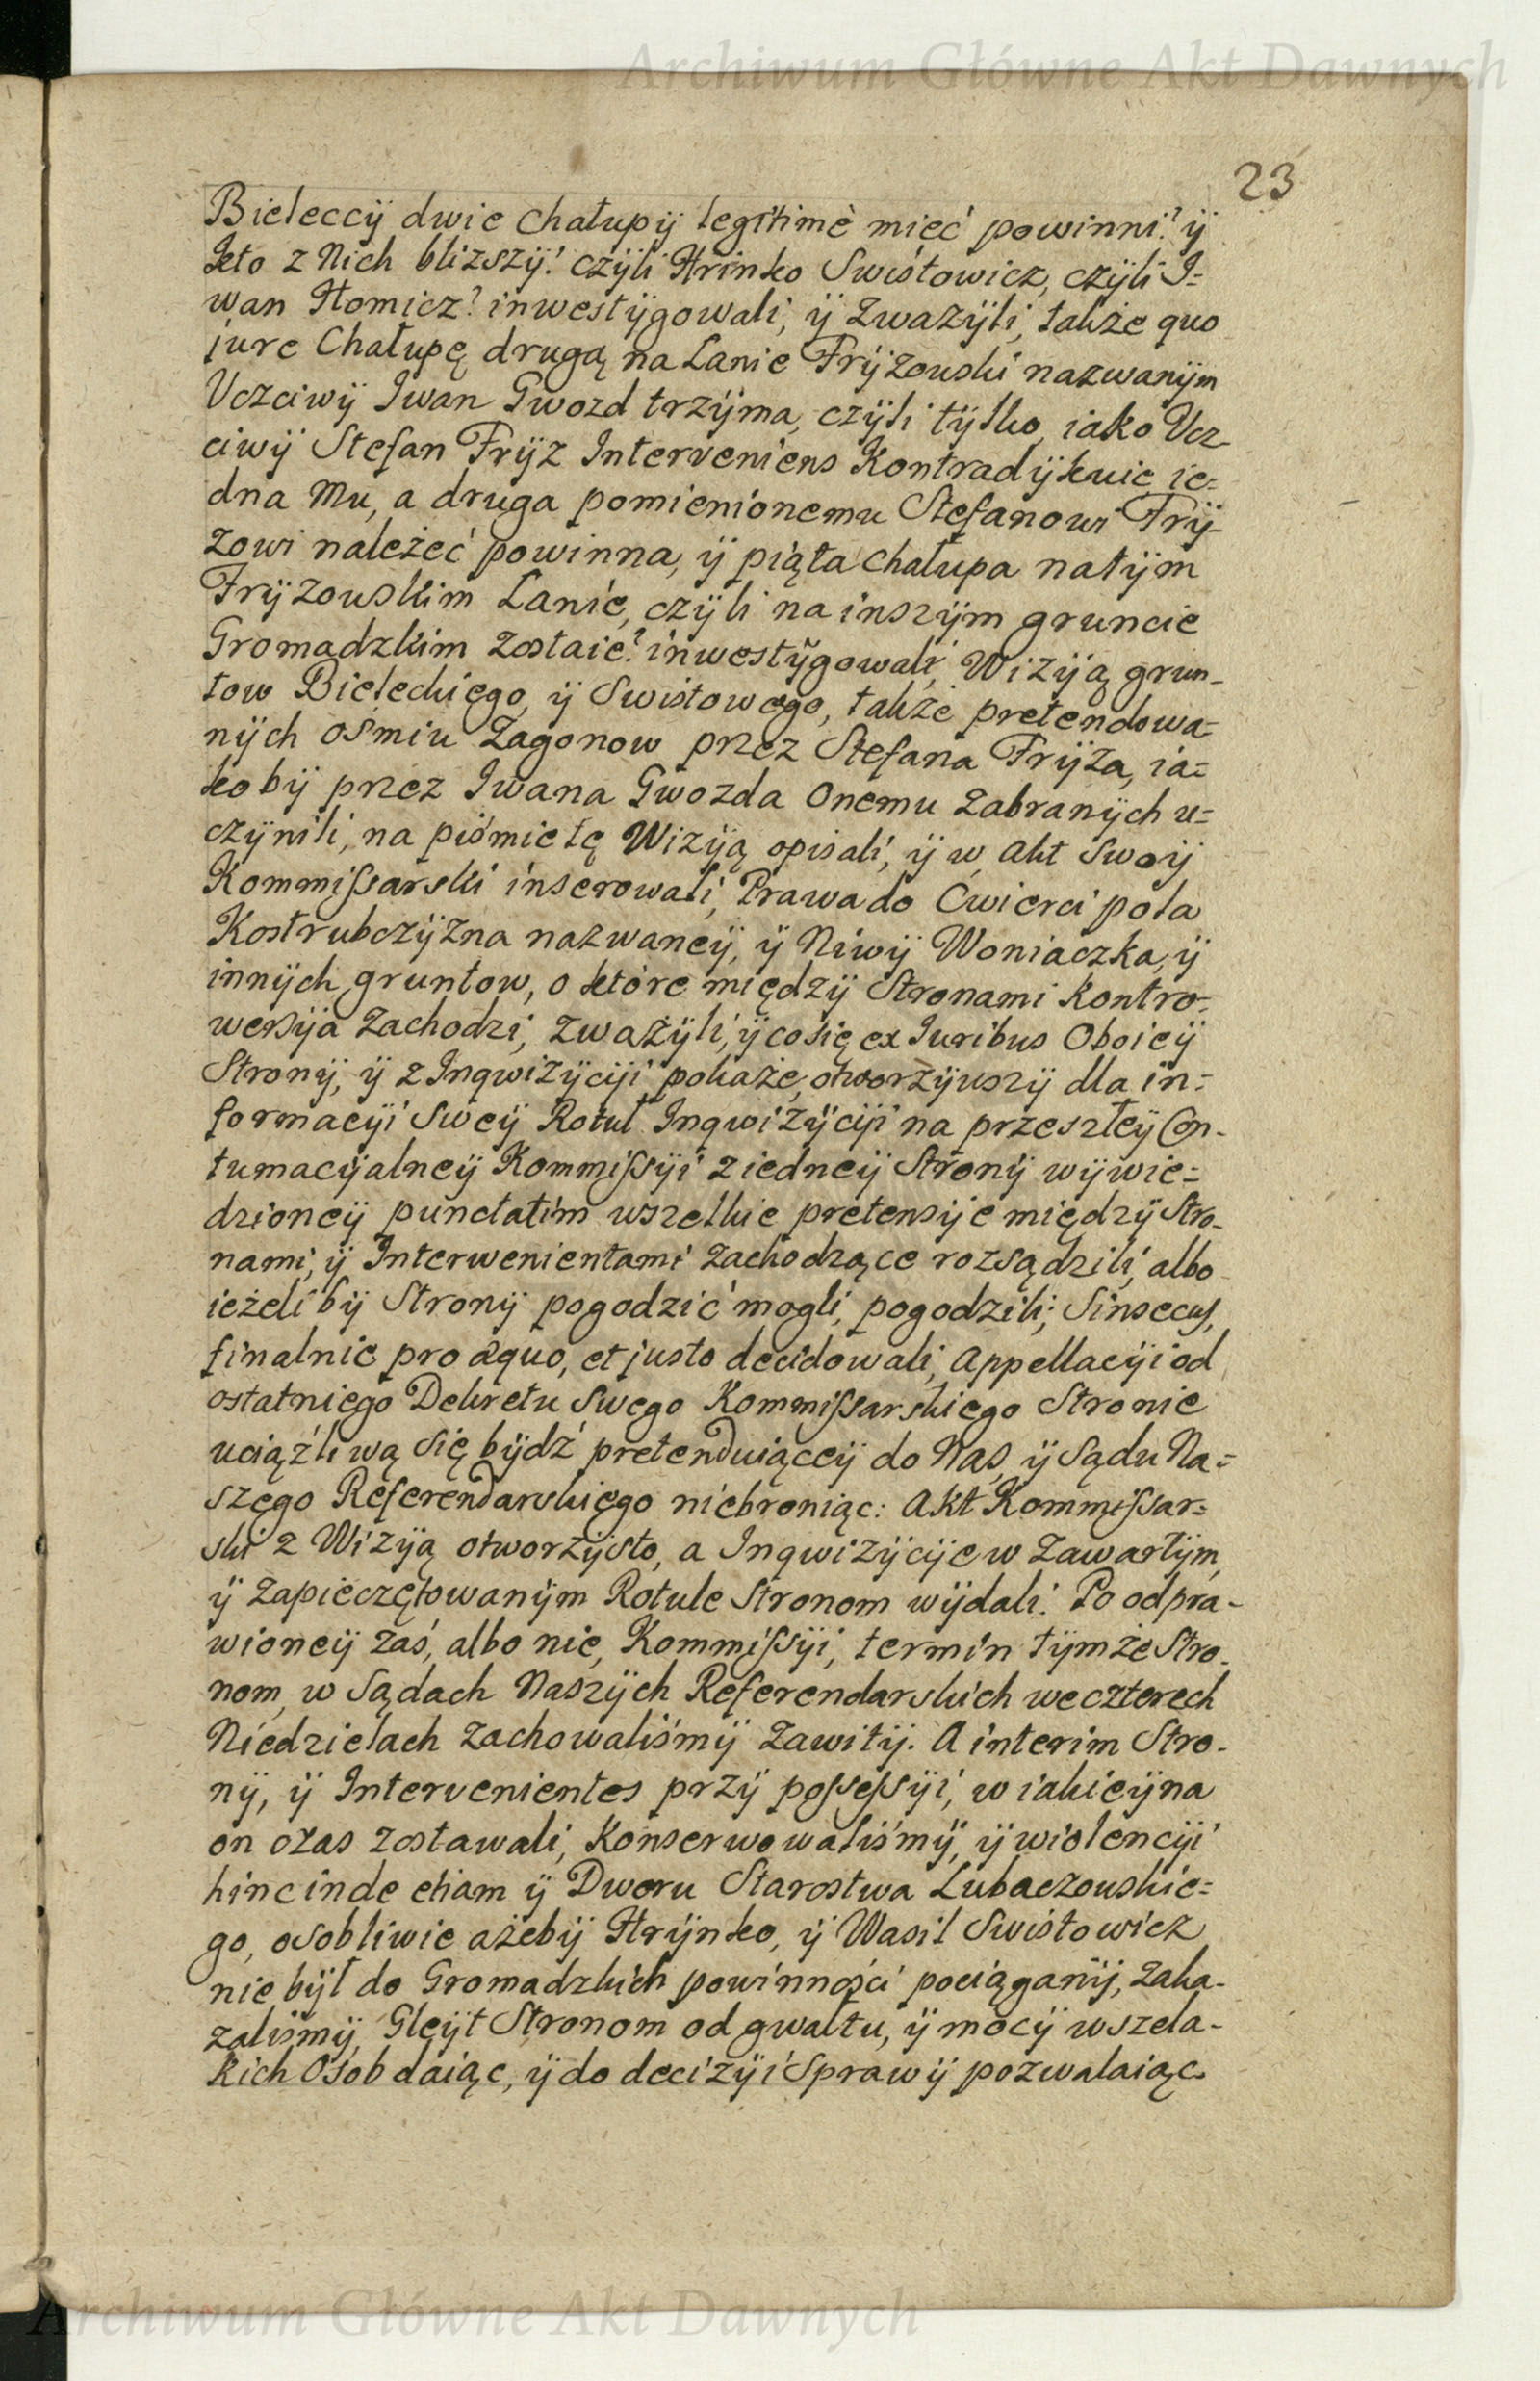 Archiwum Główne Akt Dawnych
23
Bieleccÿ dwie Chałupÿ legitimè mieć powinni? ÿ
kto z Nich bliższÿ? czÿli Hrinko Swistowicz, czÿli I=
wan Homicz? inwestÿgowali, ÿ zważÿli, także quo
jure Chałupę drugą na Łanie Frÿzowski nazwanÿm
Uczciwÿ Iwan Gwozd trzÿma, czÿli tÿlko, iako Ucz-
ciwÿ Stefan Frÿz Interveniens Kontradÿkuie, ie=
dna Mu, a druga pomienionemu Stefanowi Frÿ-
zowi należeć powinna, ÿ piąta chałupa natÿm
Frÿzowskim Łanie, czÿli na inszÿm gruncie
Gromadzkim zostaie? inwestÿgowali, Wizÿją grun-
tow Bieleckiego, ÿ Swistowego, także pretendowa=
nÿch osmiu Zagonow przez Stefana Frÿza, ia=
kobÿ przez Iwana Gwozda Onemu zabranÿch u=
czÿnili, na piśmie tę Wizÿją opisali, ÿ w Akt Swoÿ
Kommissarski inserowali, Prawa do Ćwierci pola
Kostrubczÿzna nazwaneÿ, ÿ Niwÿ Woniaczka, ÿ
innÿch gruntow, o które międzÿ Stronami Kontro=
wersÿja zachodzi, zważÿli, ÿ co się ex Juribus Oboieÿ
Stronÿ, ÿ z Inqwizÿcÿi pokaże, otworzÿwszÿ dla in=
formacÿi Sweÿ Rotuł Inqwizÿcÿi na przeszłeÿ Con-
tumacÿalneÿ Kommissÿi z iedneÿ Stronÿ wÿwie=
dzioneÿ punctatim wszelkie pretensÿje międzÿ Stro-
nami, ÿ Interwenientami zachodzące rozsądzili, albo
ieżeli bÿ Stronÿ pogodzić mogli, pogodzili; Sinsecus,
finalnie pro æquo, et justo decidowali, Appellacÿi od
ostatniego Dekretu Swego Kommissarskiego Stronie
uciążliwą się bÿdź pretenduiąceÿ do Nas, ÿ Sądu Na=
szego Referendarskiego niebroniąc: Akt Kommissar=
ski z Wizÿją otworzÿsto, a Inqwizÿcÿje w zawartÿm,
ÿ zapieczętowanÿm Rotule Stronom wÿdali. Po odpra-
wioneÿ zaś, albo nie, Kommissÿi, termin tÿmże Stro-
nom, w Sądach Naszÿch Referendarskich we czterech
Niedzielach zachowaliśmÿ zawitÿ. A interim Stro-
nÿ, ÿ Intervenientes przÿ possessÿi, w iakieÿ na
on czas zostawali, Konserwowaliśmÿ, ÿ wiolencÿi
hinc inde etiam ÿ Dworu Starostwa Lubaczowskie=
go, osobliwie ażebÿ Hrÿnko, ÿ Wasil Swistowicz
nie bÿł do Gromadzkich powinności pociąganÿ, zaka-
zaliśmÿ, Gleÿt Stronom od gwałtu, ÿ mocÿ wszela-
kich Osob daiąc, ÿ do decizÿi Sprawÿ pozwalaiąc
Archiwum Główne Akt Dawnych